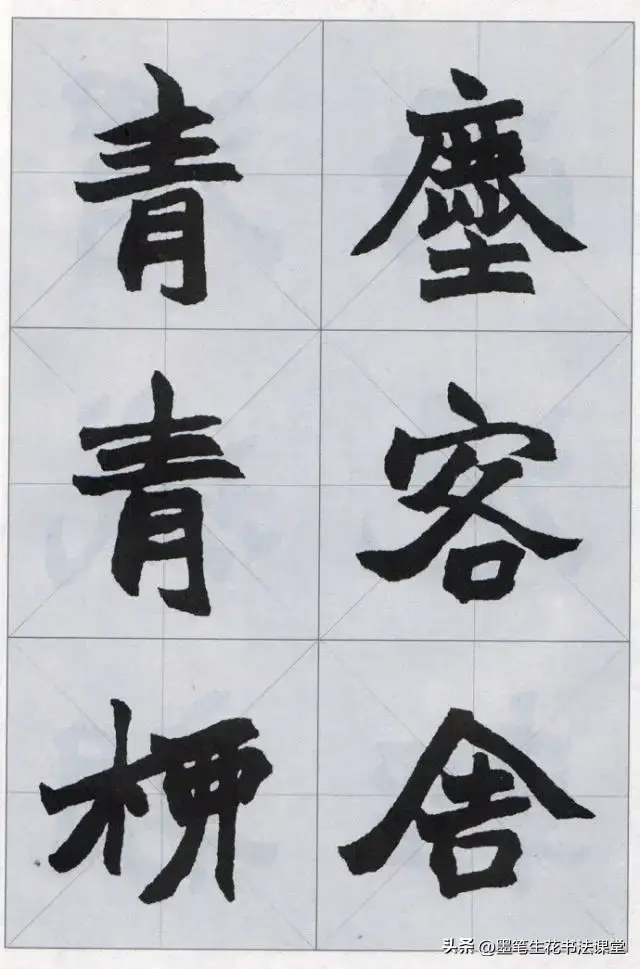 塵客舍
青青柳
头条 @墨笔生花书法课堂